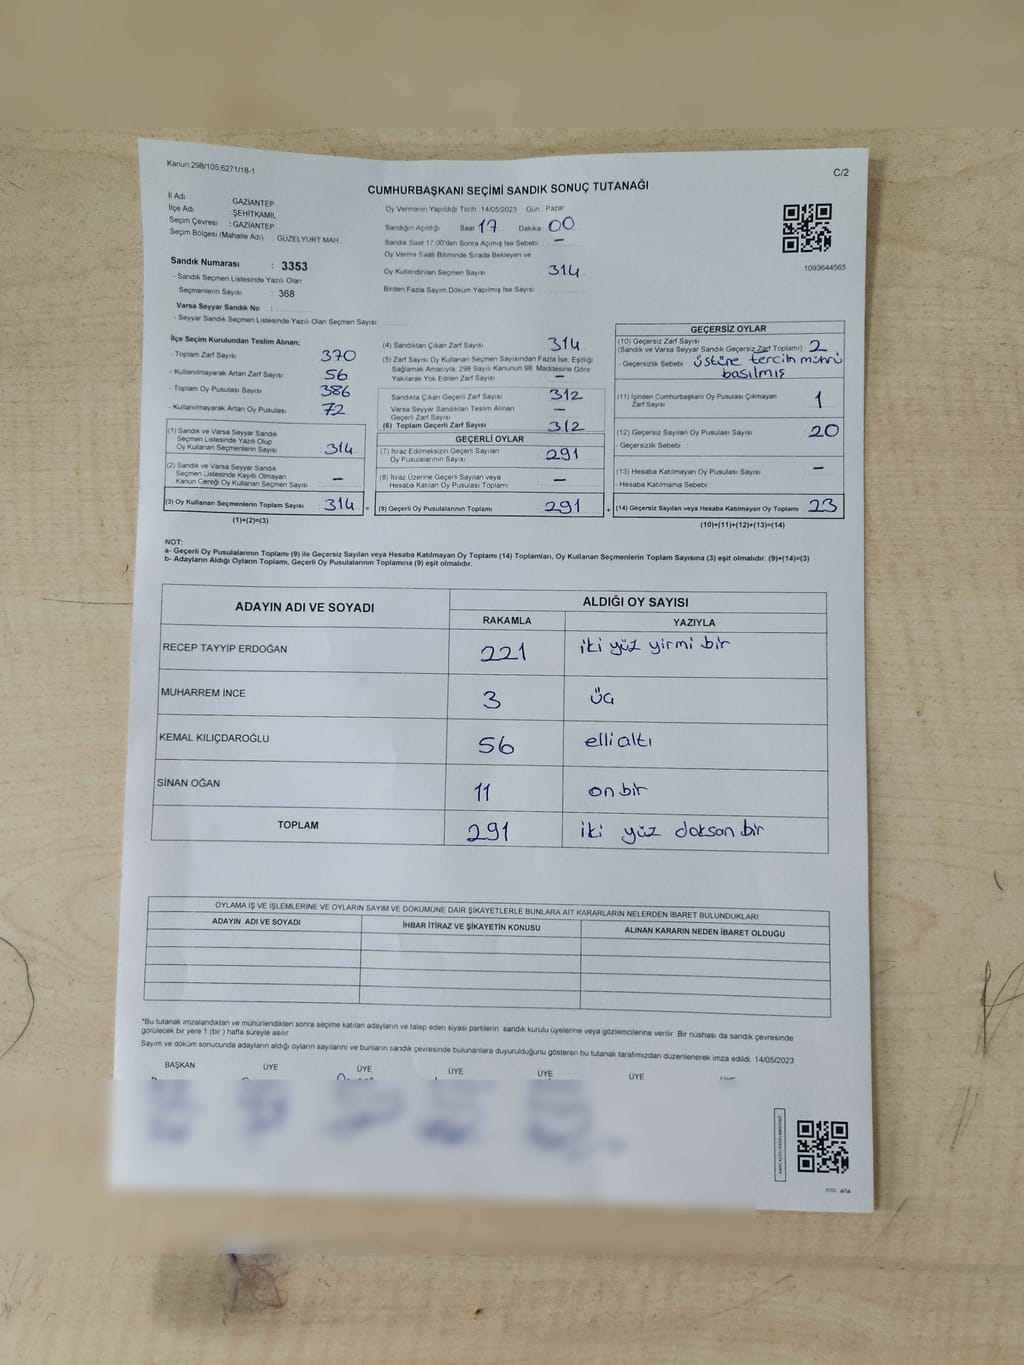 Kanun:298/105;6271/18-1
C/2
CUMHURBAŞKANI SEÇİMİ SANDIK SONUÇ TUTANAĞI
İl Adı : GAZİANTEP
İlçe Adı : ŞEHİTKAMİL
Seçim Çevresi : GAZİANTEP
Seçim Bölgesi (Mahalle Adı) : GÜZELYURT MAH.
Sandık Numarası : 3353
- Sandık Seçmen Listesinde Yazılı Olan
Seçmenlerin Sayısı : 368
Varsa Seyyar Sandık No :
- Seyyar Sandık Seçmen Listesinde Yazılı Olan Seçmen Sayısı
Oy Vermenin Yapıldığı Tarih : 14/05/2023 Gün : Pazar
Sandığın Açıldığı Saat 17 Dakika 00
Sandık Saat 17.00'den Sonra Açılmış İse Sebebi –
Oy Verme Saati Bitiminde Sırada Bekleyen ve
Oy Kullandırılan Seçmen Sayısı 314
Birden Fazla Sayım Döküm Yapılmış İse Sayısı
1093644565
İlçe Seçim Kurulundan Teslim Alınan:
- Toplam Zarf Sayısı 370
- Kullanılmayarak Artan Zarf Sayısı 56
- Toplam Oy Pusulası Sayısı 386
- Kullanılmayarak Artan Oy Pusulası 72
(1) Sandık ve Varsa Seyyar Sandık
Seçmen Listesinde Yazılı Olup
Oy Kullanan Seçmenlerin Sayısı 314
(2) Sandık ve Varsa Seyyar Sandık
Seçmen Listesinde Kayıtlı Olmayan
Kanun Gereği Oy Kullanan Seçmen Sayısı –
(3) Oy Kullanan Seçmenlerin Toplam Sayısı 314 =
(1)+(2)=(3)
(4) Sandıktan Çıkan Zarf Sayısı 314
(5) Zarf Sayısı Oy Kullanan Seçmen Sayısından Fazla İse, Eşitliği
Sağlamak Amacıyla, 298 Sayılı Kanunun 98. Maddesine Göre
Yakılarak Yok Edilen Zarf Sayısı –
Sandıkta Çıkan Geçerli Zarf Sayısı 312
Varsa Seyyar Sandıktan Teslim Alınan
Geçerli Zarf Sayısı –
(6) Toplam Geçerli Zarf Sayısı 312
GEÇERLİ OYLAR
(7) İtiraz Edilmeksizin Geçerli Sayılan
Oy Pusulalarının Sayısı 291
(8) İtiraz Üzerine Geçerli Sayılan veya
Hesaba Katılan Oy Pusulası Toplamı –
(9) Geçerli Oy Pusulalarının Toplamı 291 +
GEÇERSİZ OYLAR
(10) Geçersiz Zarf Sayısı
(Sandık ve Varsa Seyyar Sandık Geçersiz Zarf Toplamı) 2
- Geçersizlik Sebebi üstüne tercih mührü
basılmış
(11) İçinden Cumhurbaşkanı Oy Pusulası Çıkmayan
Zarf Sayısı 1
(12) Geçersiz Sayılan Oy Pusulası Sayısı 20
- Geçersizlik Sebebi :
(13) Hesaba Katılmayan Oy Pusulası Sayısı –
- Hesaba Katılmama Sebebi :
(14) Geçersiz Sayılan veya Hesaba Katılmayan Oy Toplamı 23
(10)+(11)+(12)+(13)=(14)
NOT:
a- Geçerli Oy Pusulalarının Toplamı (9) ile Geçersiz Sayılan veya Hesaba Katılmayan Oy Toplamı (14) Toplamları, Oy Kullanan Seçmenlerin Toplam Sayısına (3) eşit olmalıdır. (9)+(14)=(3)
b- Adayların Aldığı Oyların Toplamı, Geçerli Oy Pusulalarının Toplamına (9) eşit olmalıdır.
ADAYIN ADI VE SOYADI
ALDIĞI OY SAYISI
RAKAMLA YAZIYLA
RECEP TAYYİP ERDOĞAN 221 iki yüz yirmi bir
MUHARREM İNCE 3 üç
KEMAL KILIÇDAROĞLU 56 elli altı
SİNAN OĞAN 11 on bir
TOPLAM 291 iki yüz doksan bir
OYLAMA İŞ VE İŞLEMLERİNE VE OYLARIN SAYIM VE DÖKÜMÜNE DAİR ŞİKAYETLERLE BUNLARA AİT KARARLARIN NELERDEN İBARET BULUNDUKLARI
ADAYIN ADI VE SOYADI İHBAR İTİRAZ VE ŞİKAYETİN KONUSU ALINAN KARARIN NEDEN İBARET OLDUĞU
*Bu tutanak imzalandıktan ve mühürlendikten sonra seçime katılan adayların ve talep eden siyasi partilerin sandık kurulu üyelerine veya gözlemcilerine verilir. Bir nüshası da sandık çevresinde
görülecek bir yere 1 (bir) hafta süreyle asılır.
Sayım ve döküm sonucunda adayların aldığı oyların sayılarını ve bunların sandık çevresinde bulunanlara duyurulduğunu gösteren bu tutanak tarafımızdan düzenlenerek imza edildi. 14/05/2023
BAŞKAN ÜYE ÜYE ÜYE ÜYE ÜYE